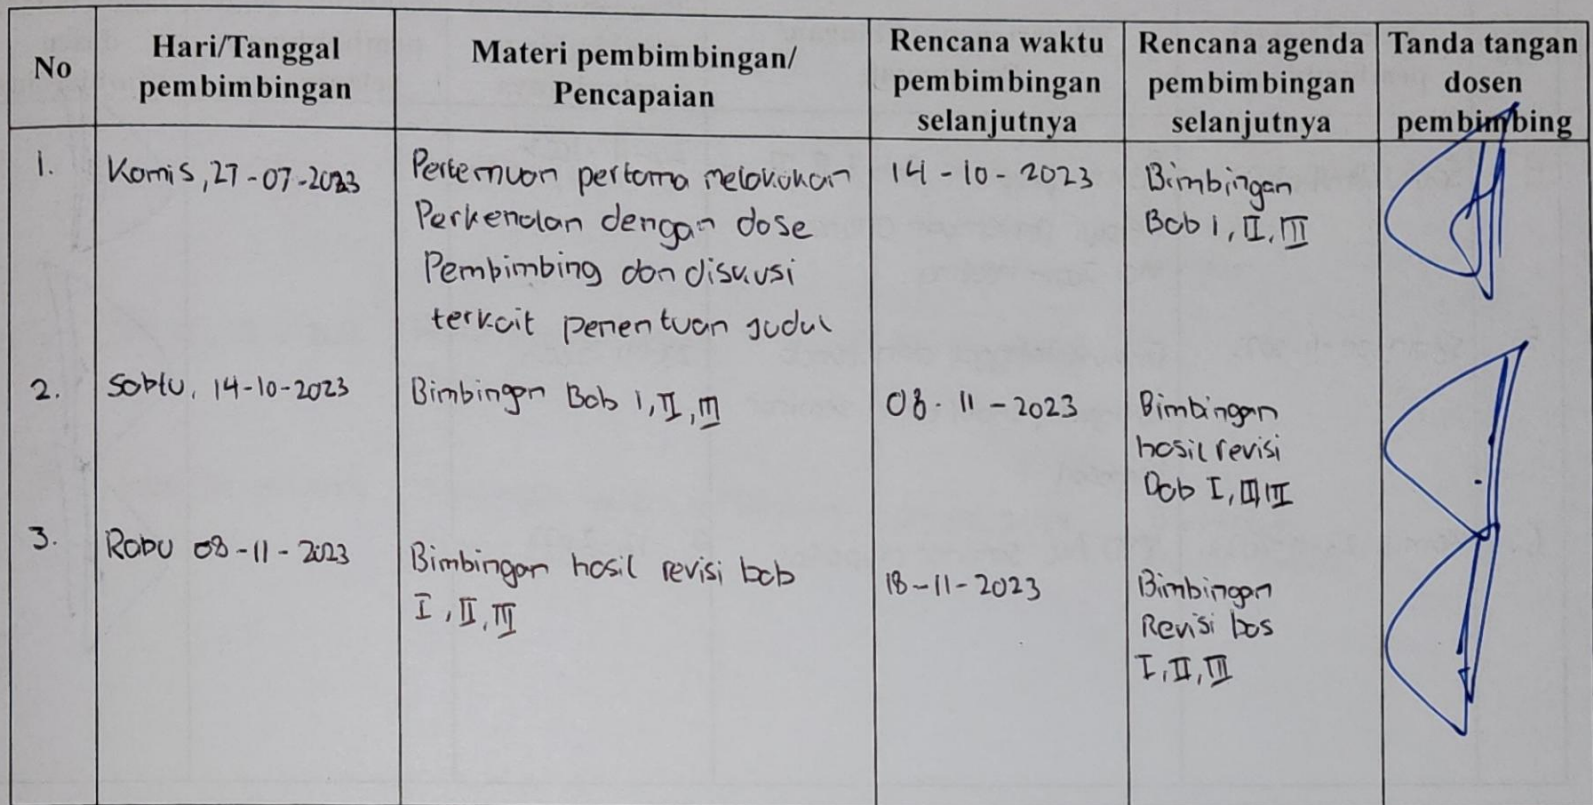 No
Hari/Tanggal
pembimbingan
Materi pembimbingan/
Pencapaian
Rencana waktu
pembimbingan
selanjutnya
Rencana agenda
pembimbingan
selanjutnya
Tanda tangan
dosen
pembimbing
1.
Kamis, 27-07-2023
Pertemuan pertama melakukan
Perkenalan dengan dose
Pembimbing dan diskusi
terkait penentuan judul
14-10-2023
Bimbingan
Bab I, II, III
2.
Sabtu, 14-10-2023
Bimbingan Bab I, II, III
08-11-2023
Bimbingan
hasil revisi
Bab I, II, III
3.
Rabu 08-11-2023
Bimbingan hasil revisi bab
I, II, III
18-11-2023
Bimbingan
Revisi bab
I, II, III